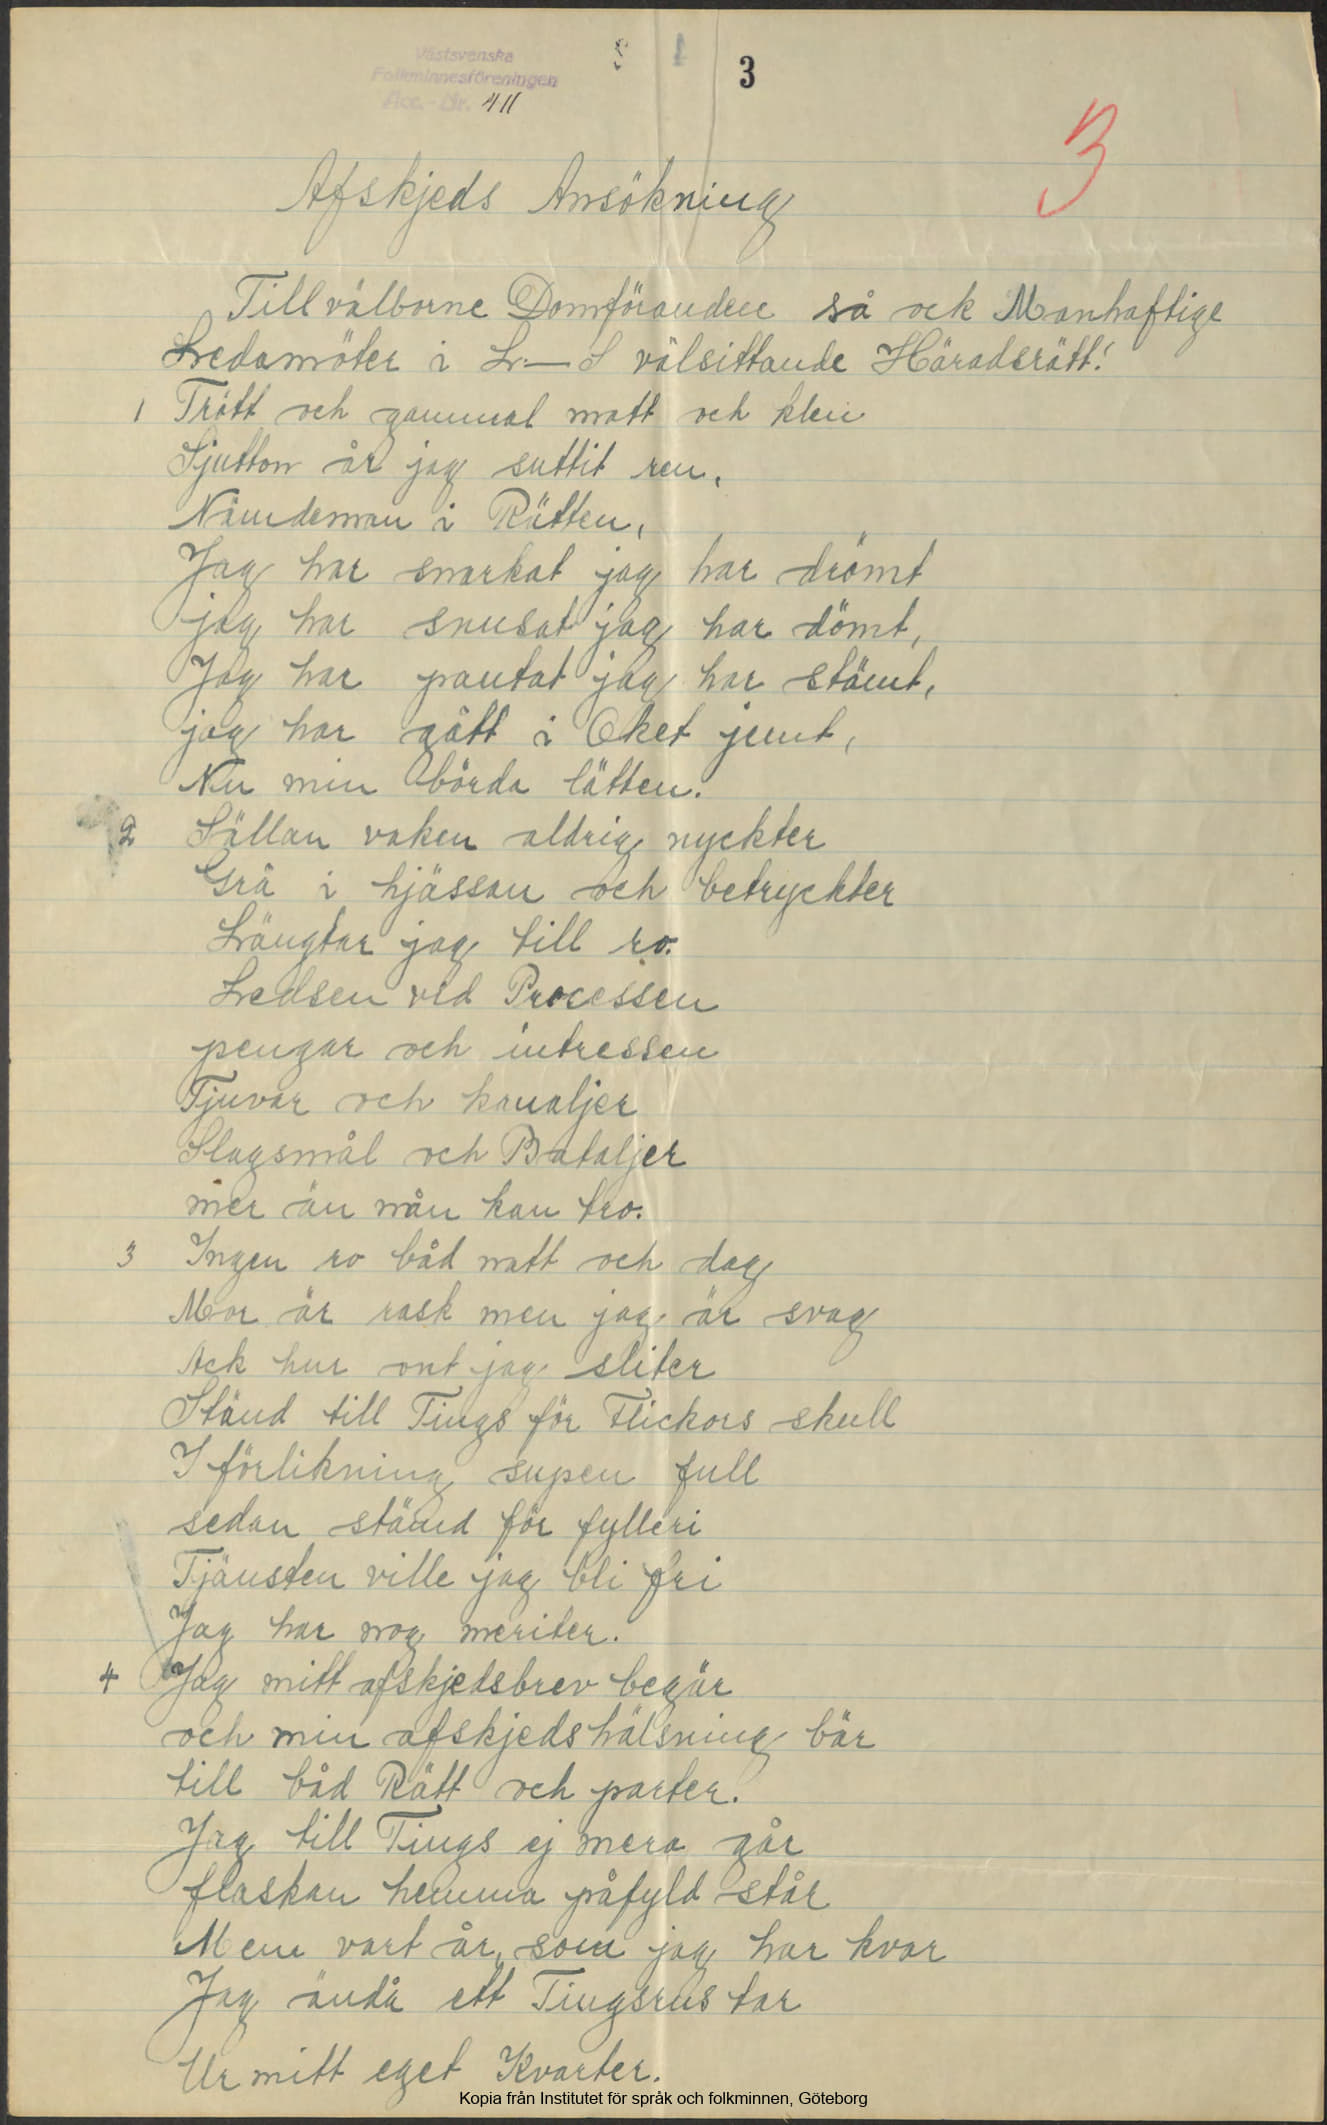 Västsvenska
Folkminnesföreningen
Acc. - Nr. 411
3
3
Afskjeds Ansökning
Till välborne Domföranden så ock Manhaftige
Ledamöter i L—S välsittande Häradsrätt!
1 Trött och gammal matt och klen
Sjutton år jag suttit ren,
Nämdeman i Rätten,
Jag har snarkat jag har drömt
jag har snusat jag har dömt,
Jag har pantat jag har stämt,
jag har gått i Oket jemt,
Nu min börda lätten.
2 Sällan vaken aldrig nyckter
Grå i hjässan och betryckter
Längtar jag till ro.
Ledsen ved Processen
pengar och intressen
Tjuvar och kanaljer
Slagsmål och Bataljer
mer än mån kan tro.
3 Ingen ro båd natt och dag
Mor är rask men jag är svag
Ack hur ont jag sliter
Ständ till Tings för Flickors skull
I förlikning supen full
sedan ständ för fylleri
Tjänsten ville jag bli fri
Jag har nog meriter.
4 Jag mitt afskjedsbrev begär
och min afskjedshälsning bär
till båd Rätt och parter.
Jag till Tings ej mera går
flaskan hemma påfyld står
Men vart år, som jag har kvar
Jag ändå ett Tingsrus tar
Ur mitt eget Kvarter.
Kopia från Institutet för språk och folkminnen, Göteborg